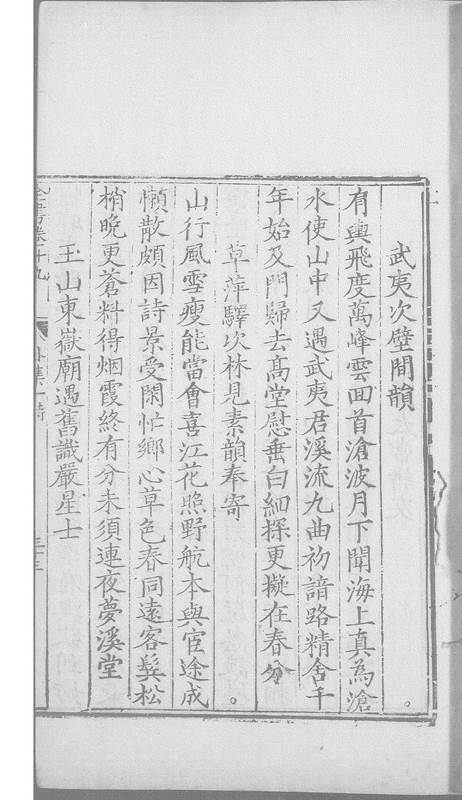 武夷次壁間韻。
有輿飛度萬峰雲回首滄波月下聞海上真為滄
水使山中又遇武夷君溪流九曲初諳路精舍千
年始及門歸去髙堂慰垂白細探更擬在春分
草萍驛次林見素韻奉寄。
山行風雪瘦能當會喜江花照野航本與宦途成
懶散頗因詩景受閑忙鄉心草色春同遠客鬂松
梢晚更蒼料得烟霞終有分未須連夜夢溪堂
玉山東嶽廟遇舊識嚴星士